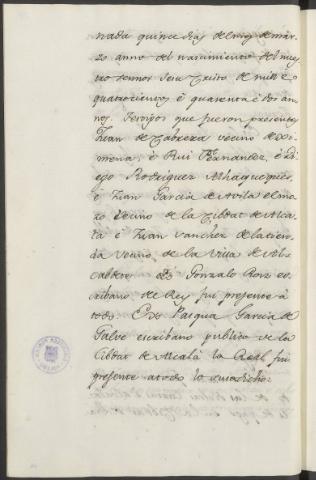 nada quince dias del mes de mar-
zo anno del nascimiento del nues-
tro sennor Jesu Christo de mill é
quatrocientos é quarenta é dos an-
nos. Testigos que fueron presentes
Juan de Cabrera vecino de Xi-
mena, é Rui Fernandez, é Di-
ego Rodriguez Alhaqueques,
é Juan Garcia de Avila el mo-
zo vecino de la Cibdat de Alca-
lá é Juan Sanchez de la tien-
da vecino de la Villa de
Gonzalo Roiz es-
cribano de Rey fui presente á
todo. Pasqua Garcia de
Galve escribano publico de la
Cibdat de Alcalá la Real fui
presente a todo lo susodicho